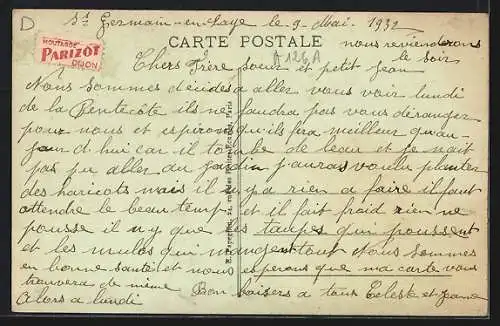 D
St Germain-en-Laye le 9 Mai 1932
MOUTARDE
PARIZOT
DIJON
CARTE POSTALE
A 126 A
nous reviendrons
le soir
Chers Frère soeur et petit Jean
Nous sommes décidés a aller vous voir lundi
de la Pentecôte il ne faudra pas vous déranger
pour nous et espérons qu'ils fera meilleur qu'au-
jour d'hui car il tombe de leau et je nait
pas pu aller au jardin j'aurais voulu planter
des haricots mais il n'y a rien a faire il faut
attendre le beau temps et il fait froid rien ne
pousse il n'y que les taupes qui poussent
et les mulos qui mangent tout Nous sommes
en bonne santé et nous esperons que ma carte vous
trouvera de même Bon baisers a tous Céleste et Jeanne
Alors a lundi